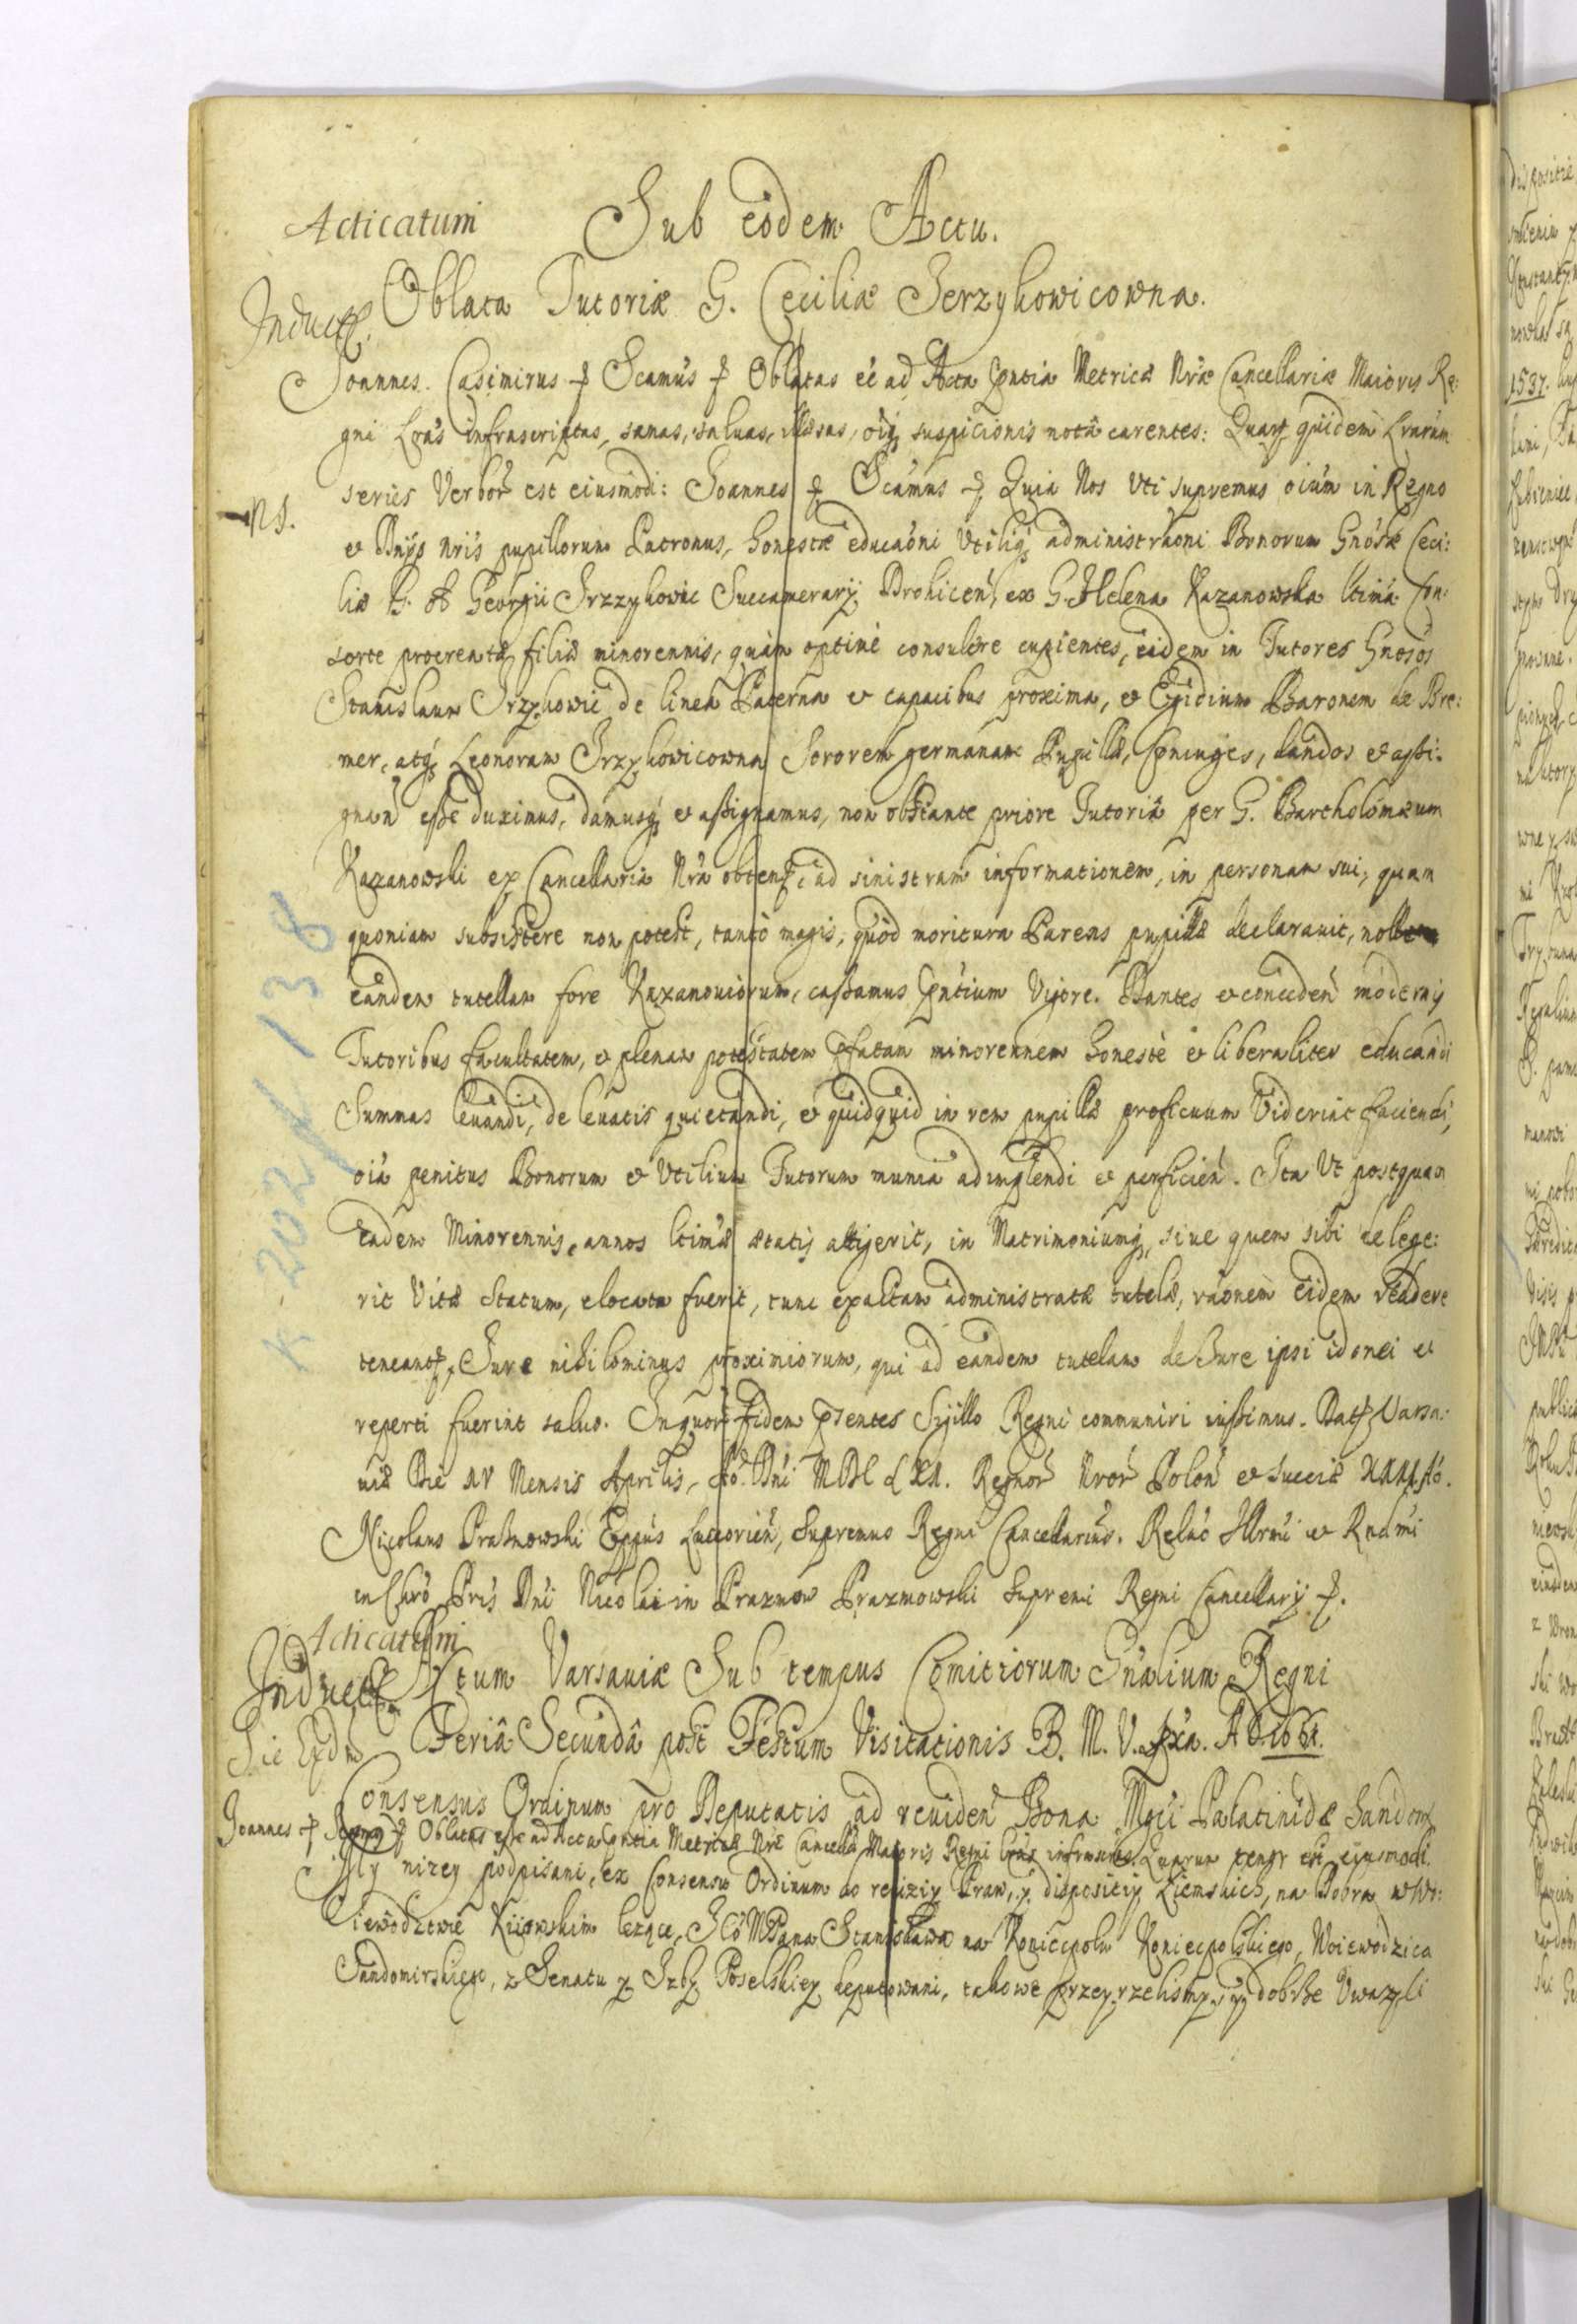 Acticatum Sub eodem Actu.
Induct. Oblata Tutoriæ G. Ceciliæ Jerzykowicowna.
Joannes Casimirus Scamus Oblatas eé ad Acta pntia Metricæ Nræ Cancellariæ Maioris Re:
gni Lras infrascriptas, sanas, saluas, illæsas, oiq suspicionis notâ carentes: Quarum quidem Lrarum
series Verbor est eiusmodi: Joannes Scamus Quia Nos Uti supremus oium in Regno
NS.
et Dnijs nris pupillorum Patronus, honestæ educaoni Utiliq administraoni Bonorum Gnosæ Ceci:
liæ G. Georgii Irzzykowic Succamerarij Drohicen, ex G. Helena Kazanowska ltima Con:
sorte procreatæ filiæ minorennis, quàm optimè consulere cupientes, eidem in Tutores Gnosos
Stanislaum Irzykowic de linea Paterna et capacibus proxima, et Egidium Baronem de Bre:
mer, atq Leonoram Irzykowicowna Sororem germanam Pupillæ, Coniuges, dandos et assi:
gnan esse duximus, damusq et assignamus, non obstante priore Tutoriâ per G. Bartholomæum
Kazanowski ex Cancellaria Nra obtent, ad sinistram informationem, in personam sui, quam
quoniam subsistere non potest, tantò magis, quòd moritura Parens pupillæ declarauit, nolle
eandem tutellam fore Kazanouiorum, cassamus pntium Vigore. Dantes et conceden modernis
Tutoribus facultatem, et plenam potestatem pfatam minorennem honestè et liberaliter educandi
Summas leuandi, de leuatis quietandi, et quidquid in rem pupillæ proficuum Viderint faciendi,
oia penitus Bonorum et Utilium Tutorum munia adimplendi et perficien. Ita Ut postquam
eadem Minorennis, annos ltimæ ætatis attigerit, in Matrimoniumq, siue quem sibi delege:
rit Vitæ Statum, elocata fuerit, tunc exactam administratæ tutelæ, raonem eidem reddere
teneant, Jure nihilominus proximiorum, qui ad eandem tutelam de Jure ipsi idonei et
reperti fuerint saluo. In quor fidem psentes Sigillo Regni communiri iussimus. Dat Varsa:
uiæ Die XV Mensis Aprilis, Ao Dni MDC LXI. Regnor Nror Polon et Sueciæ XIII Ao.
Nicolaus Prażmowski Eppus Luceorien, Supremus Regni Cancellarius. Relao Illrmi et Rndmi
in Chro Pris Dni Nicolai in Prazmow Prazmowski Supremi Regni Cancellarij
Acticatum
Induct. Actum Varsauiæ Sub tempus Comitiorum Gnalium Regni
Feriâ Secundâ post Festum Visitationis B. M. V. pxa. AD. 1661.
Consensus Ordinum pro Deputatis ad reuiden Bona Mgci Palatinidæ Sandom
Joannes Oblatas esse ad Acta pntia Metricæ Nræ Cancellæ Maioris Regni lras infrascriptas Quarum tenor est eiusmodi.
My nizey podpisani, ex Consensu Ordinum do reuiziy Praw, y dispositiy Ziemskich, na Dobra w Wo:
iewodztwie Kiiowskim leząca, Je MPana Stanisława na Koniecpolu Koniecpolskiego, Woiewodzica
Sandomirskiego, z Senatu y Izby Poselskiey deputowani, takowe przeyrzelismy, y dobrze Uwazyli
K-202/138